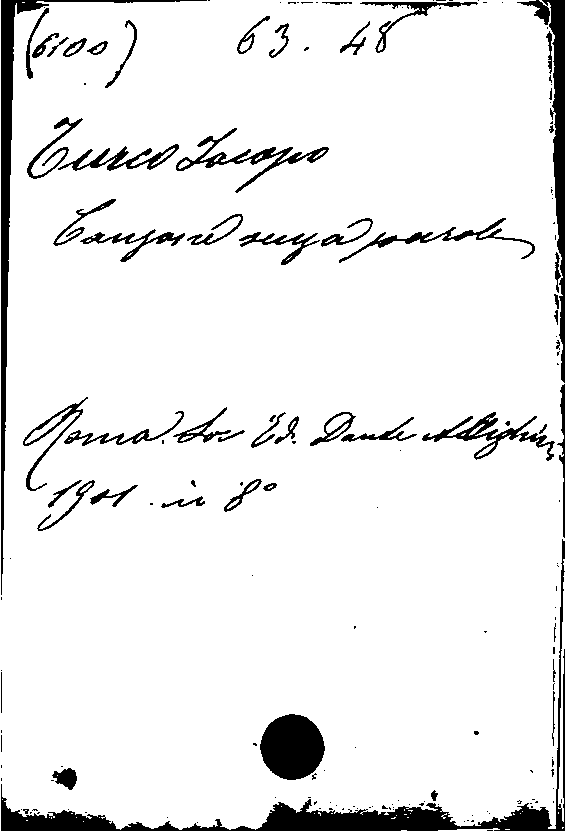 (6100) 63. 48
Turco Jacopo
Canzone senza parole
Roma. Soc Ed. Dante Allighieri
1901 in 8°